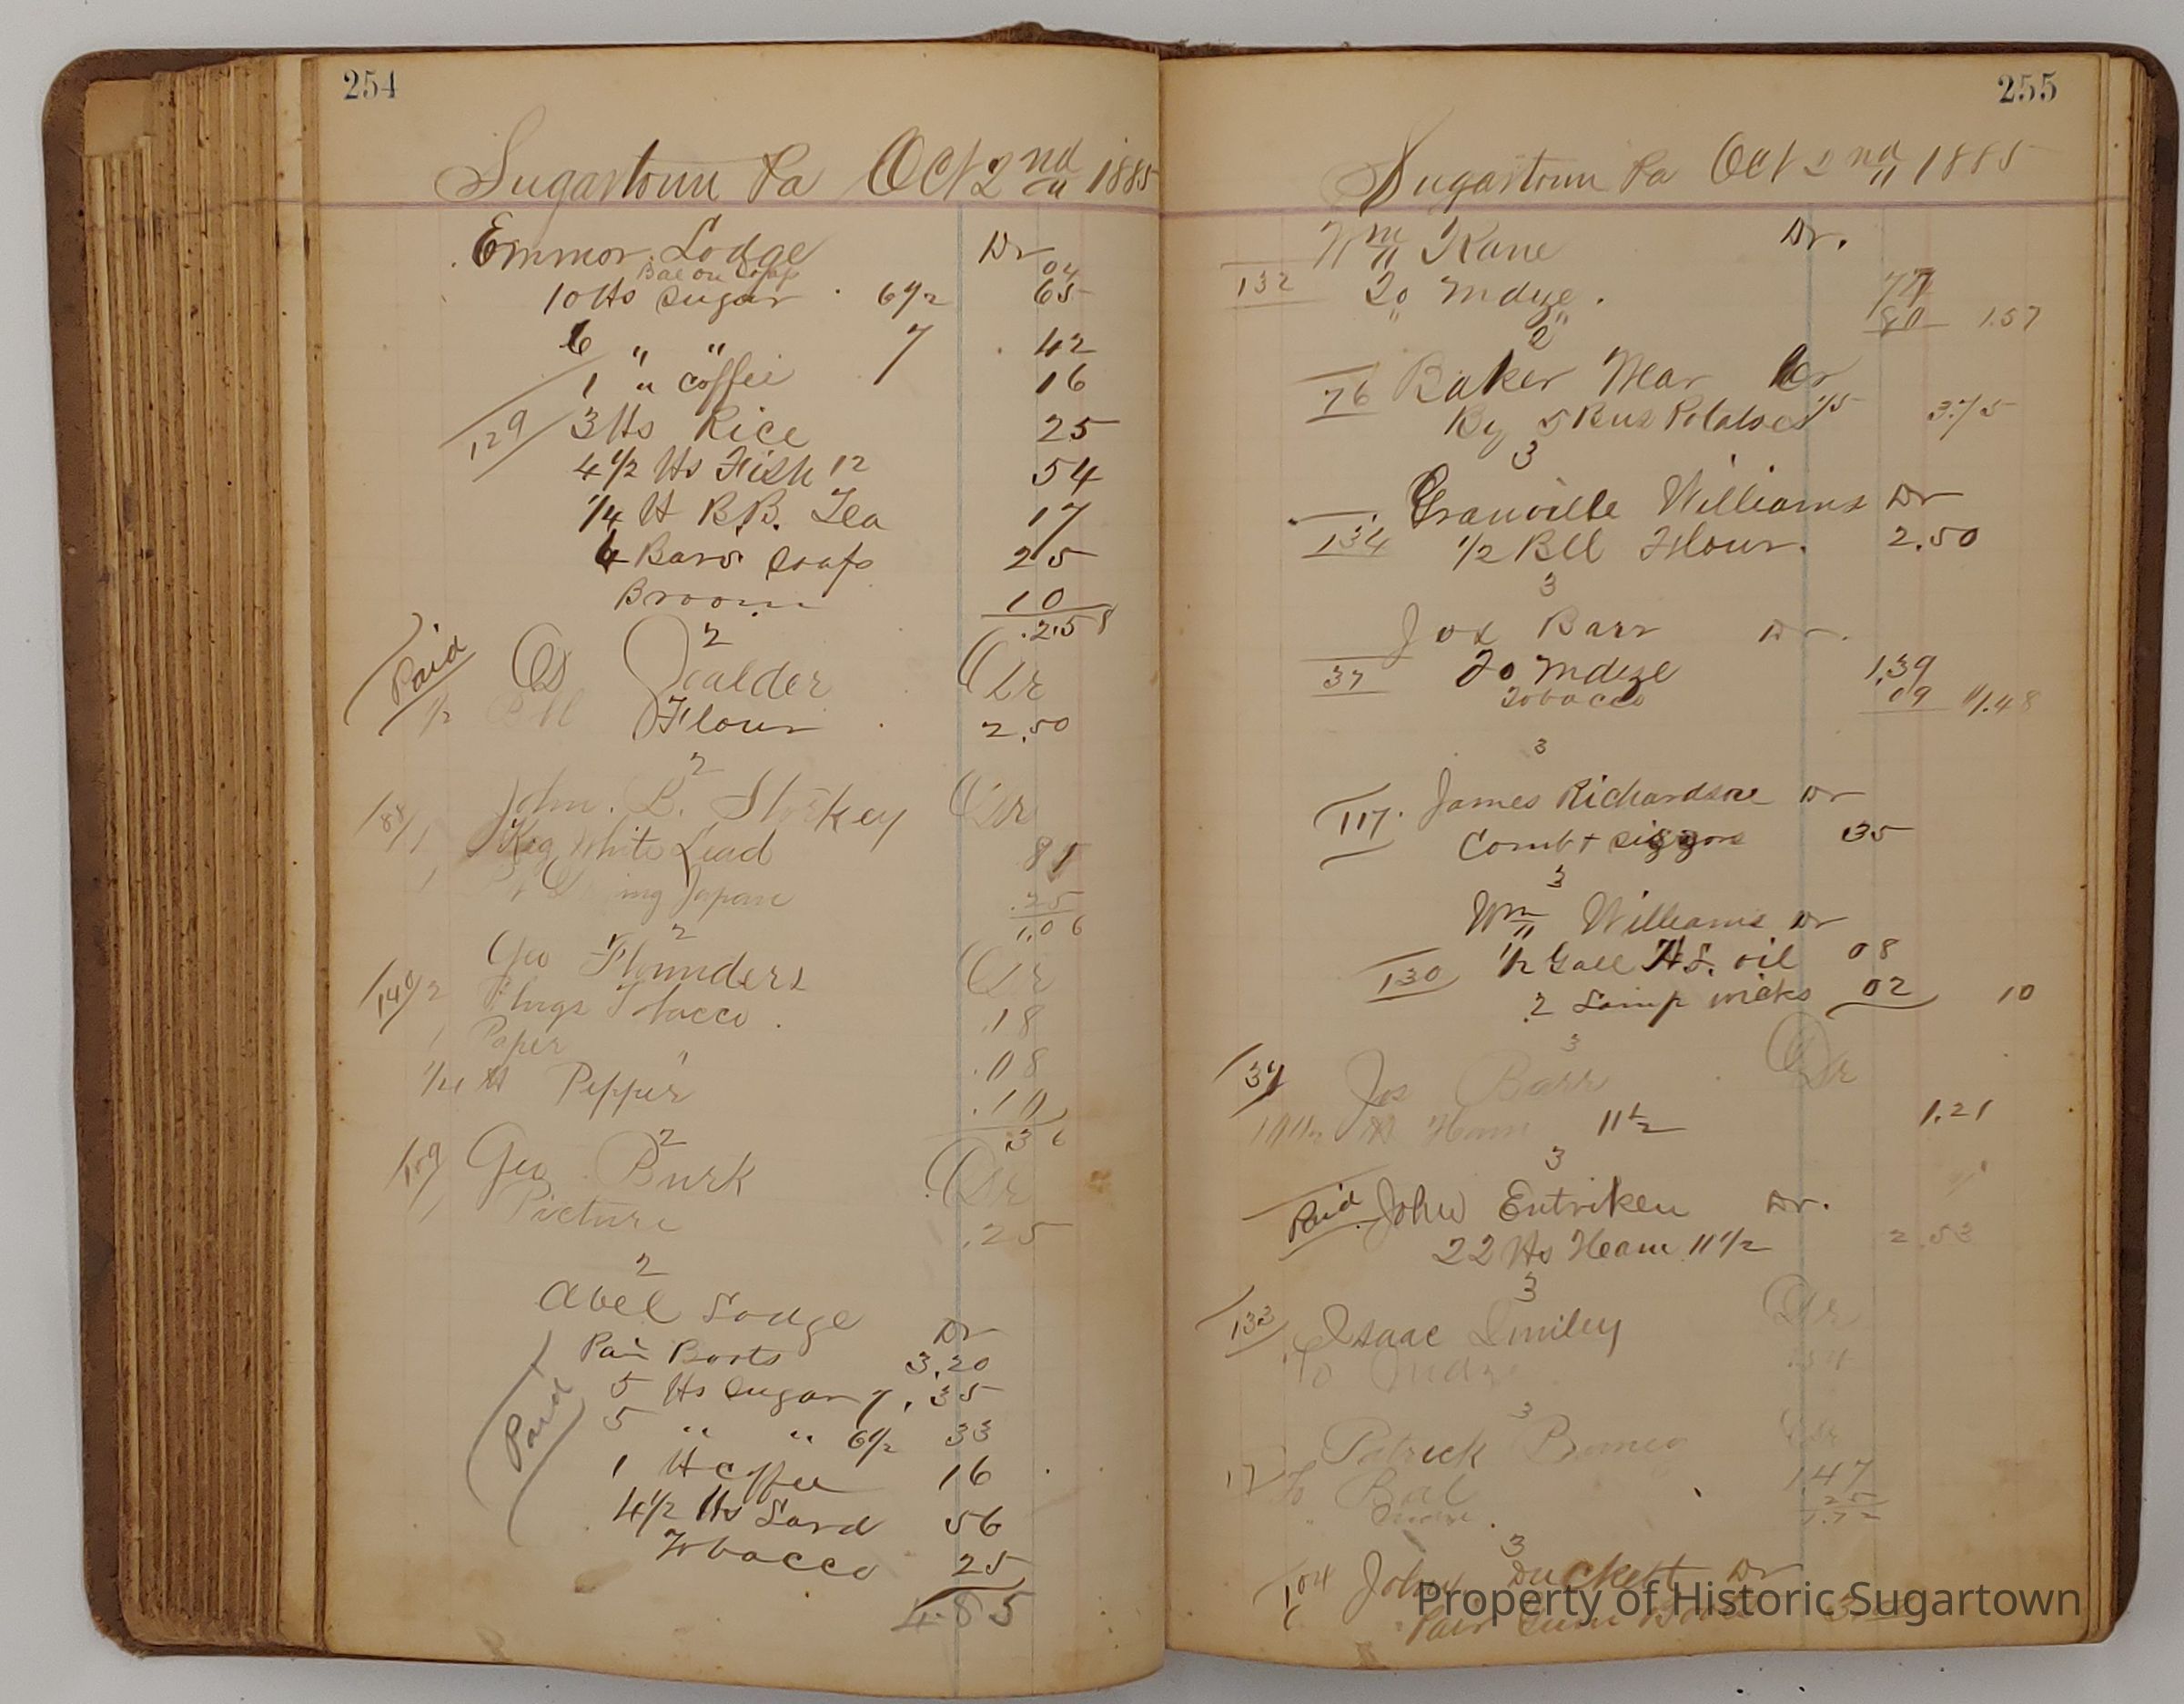 254
Sugartown Pa Oct 2nd 1885
Emmor Lodge Dr
04
10 lbs Sugar 6 1/2 65
6 " " 7 42
1 " Coffee 16
129 3 lbs Rice 25
4 1/2 lbs Fish 12 54
1/4 lb B.B. Tea 17
6 Bars Soap 25
Broom 10
2.58
2
Paid Calder Dr
1/2 Bbl Flour 2.50
2
John. B. Storkey Dr
1 Keg White Lead 81
1 Japan .25
1.06
2
Geo Flounders Dr
140 2 Plugs Tobacco .18
1 Paper " .08
1/4 lb Pepper .10
36
2
109 Geo Burk Dr
1 Picture .25
2
Abel Lodge Dr
Pair Boots 3.20
5 lbs Sugar 7 .35
Paid 5 " " 6 1/2 33
1 lb Coffee 16
4 1/2 lbs Lard 56
Tobacco 25
4.85
255
Sugartown Pa Oct 2nd 1885
Wm Kane Dr.
132 To Mdze. 77
" " 80 1.57
2
76 Baker Mar Cr
By 5 Bus Potatoes 75 3.75
3
Granville Williams Dr
134 1/2 Bbl Flour. 2.50
3
Jos Barr Dr.
37 To Mdze 1.39
Tobacco 09 1.48
3
117. James Richardson Dr
Comb + 35
3
Wm Williams Dr
130 1/2 Gall H.S. oil 08
2 Lamp wicks 02 10
3
37 Jos Barr Dr
lb Ham 11 1/2 1.21
3
Paid John Entriken Dr.
22 lbs Ham 11 1/2 2.53
3
133 Isaac Smiley Dr
To Mdze
3
Patrick Dr
17 To Bal 1.47
.25
1.72
3
104 John Duckett Dr
Pair Gum Boots 3.
Property of Historic Sugartown